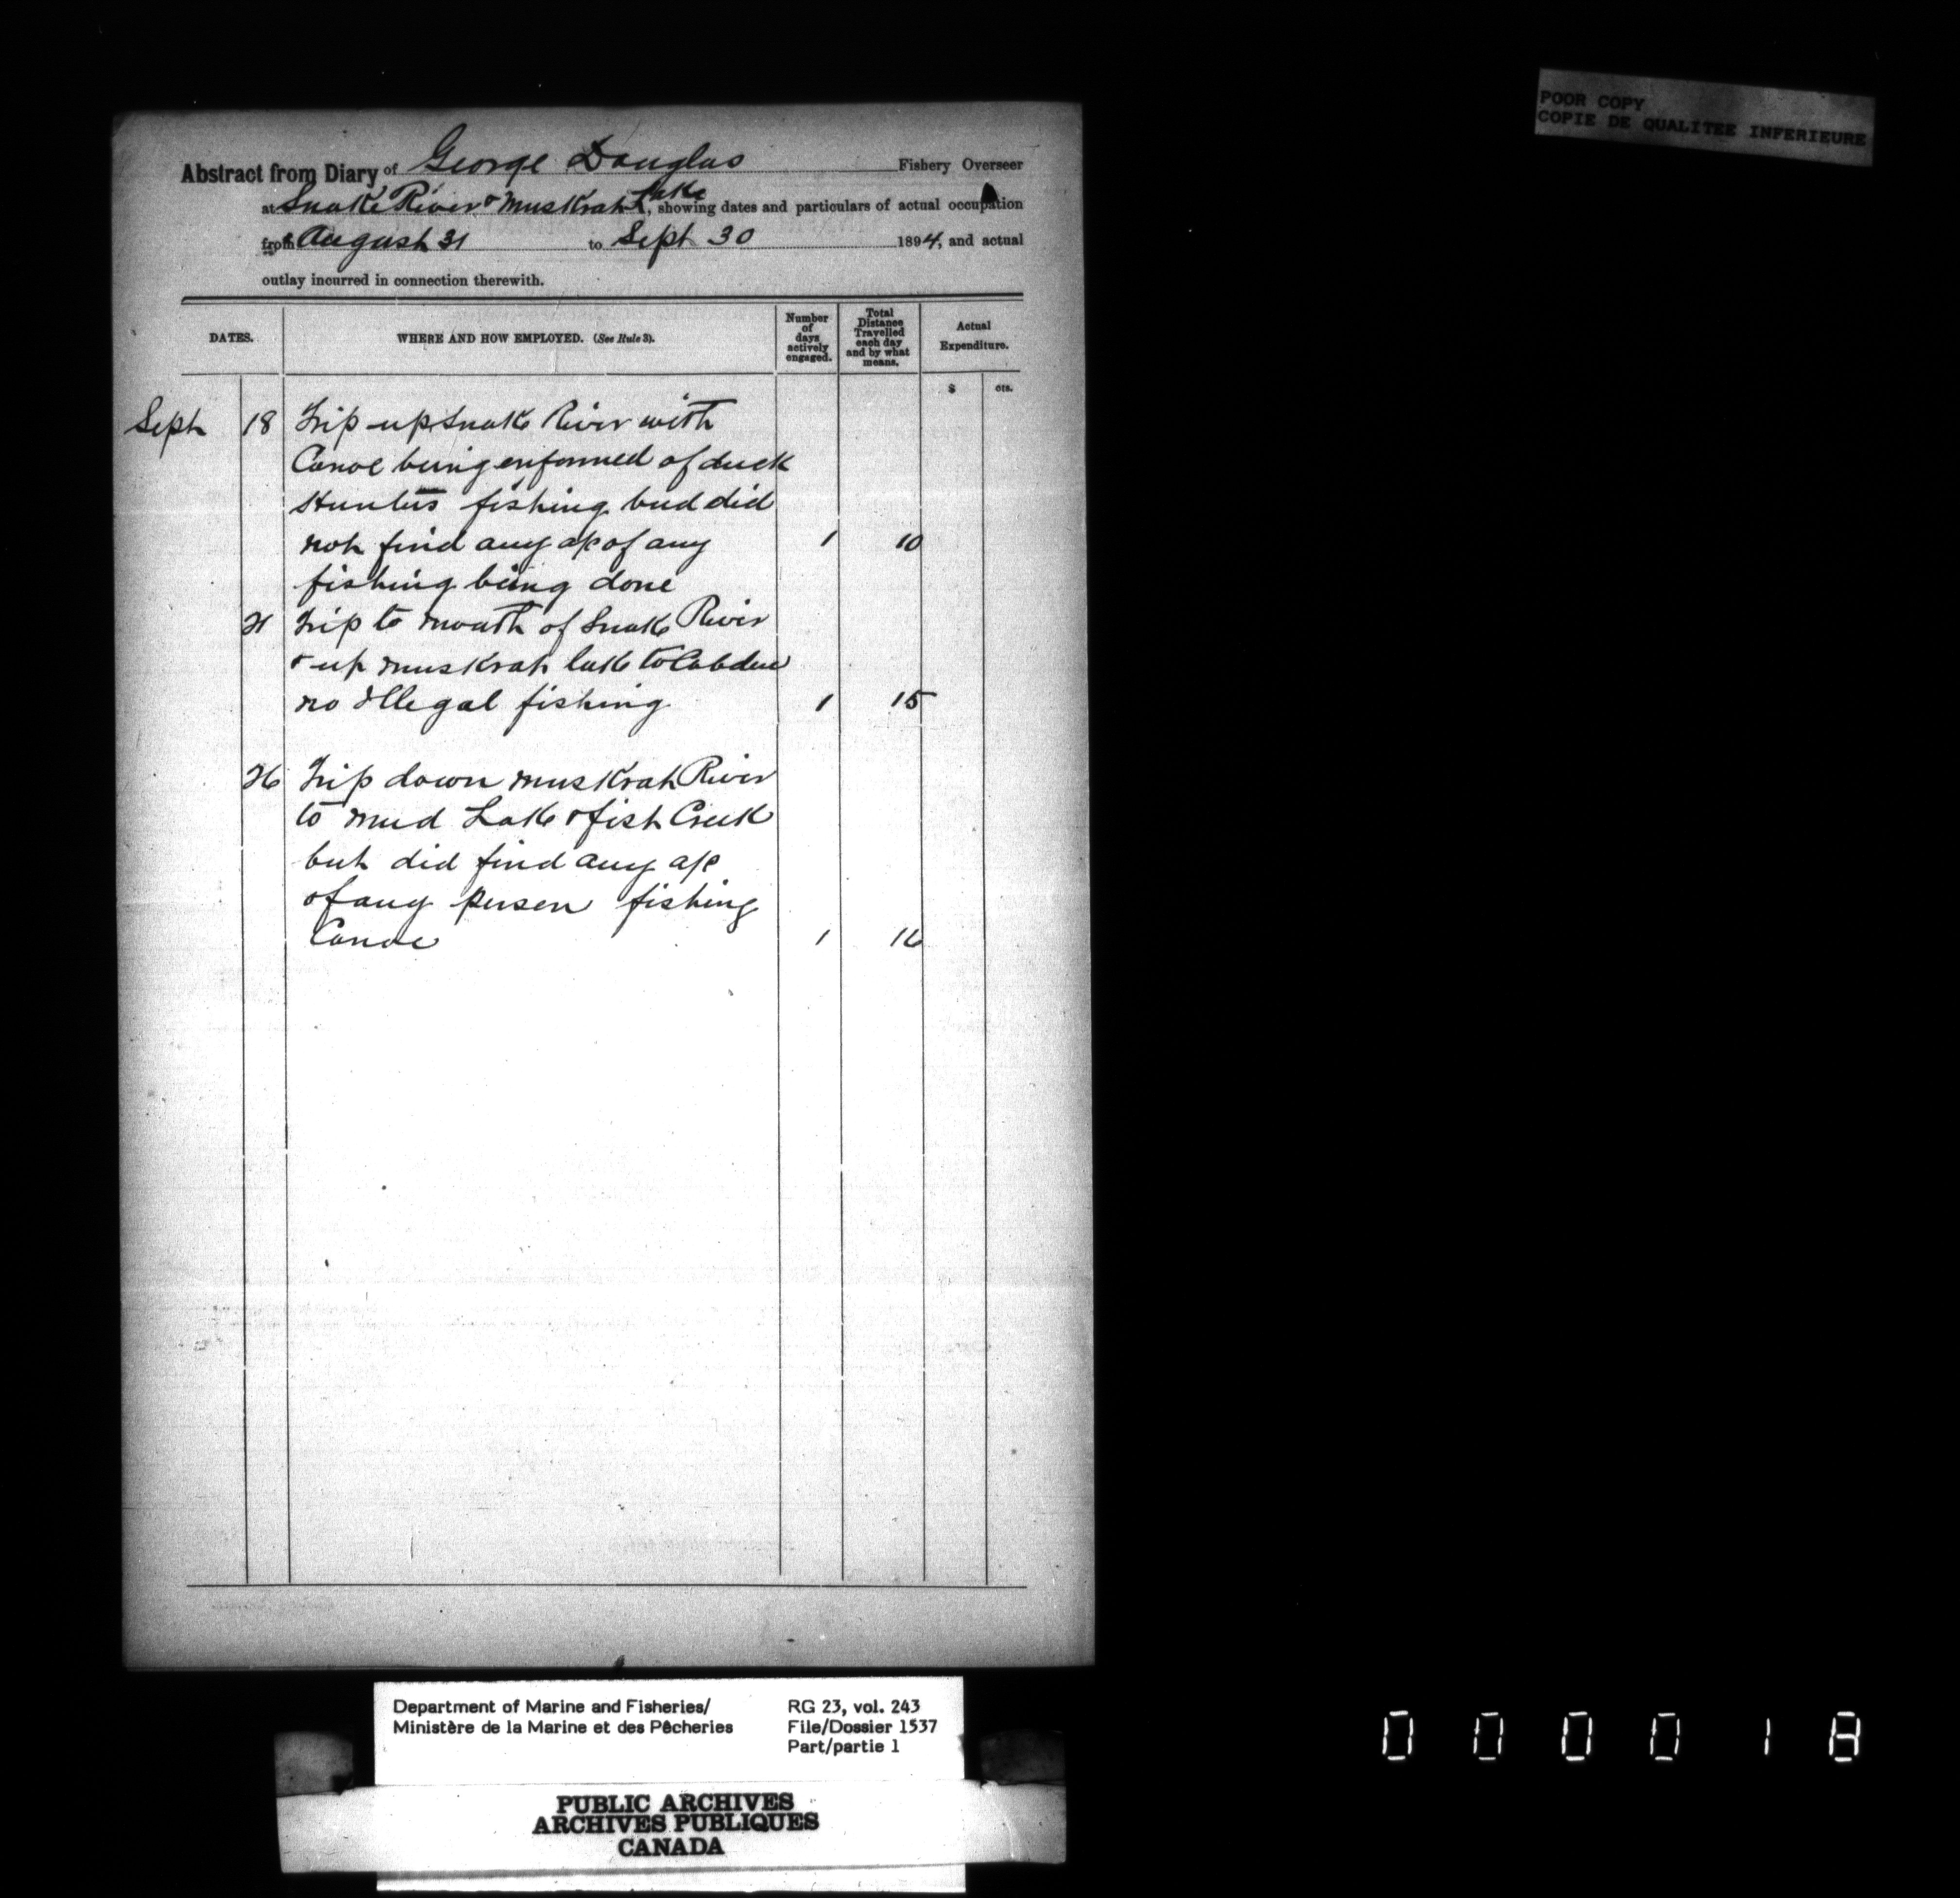 POOR COPY
COPIE DE QUALITEE INFERIEURE
Abstract from Diary of George Douglas Fishery Overseer
at Snake River & Muskrat Lake, showing dates and particulars of actual occupation
from August 31 to Sept 30 1894, and actual
outlay incurred in connection therewith.
DATES. WHERE AND HOW EMPLOYED. (See Rule 3). Number of days actively engaged. Total Distance Travelled each day and by what means. Actual Expenditure.
$ cts.
Sept 18 Trip up Snake River with
Canoe being enformed of duck
Hunters fishing bud did
not find any a/c of any 1 10
fishing being done
21 Trip to mouth of Snake River
& up muskrat lake to Cobden
no Illegal fishing 1 15
26 Trip down muskrat River
to mud Lake & fish Creek
but did find any a/c
of any person fishing
Canoe 1 16
Department of Marine and Fisheries/ RG 23, vol. 243
Ministère de la Marine et des Pêcheries File/Dossier 1537
Part/partie 1
PUBLIC ARCHIVES
ARCHIVES PUBLIQUES
CANADA
0 0 0 0 1 8